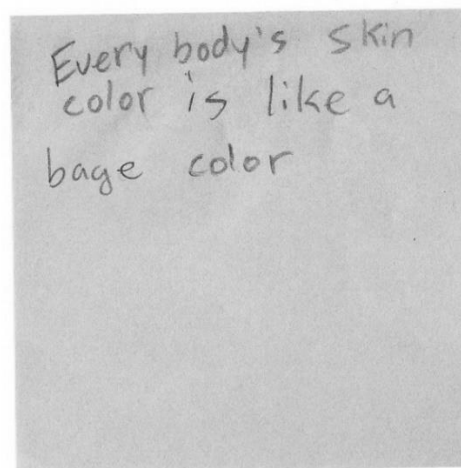 Every body's skin
color is like a
bage color